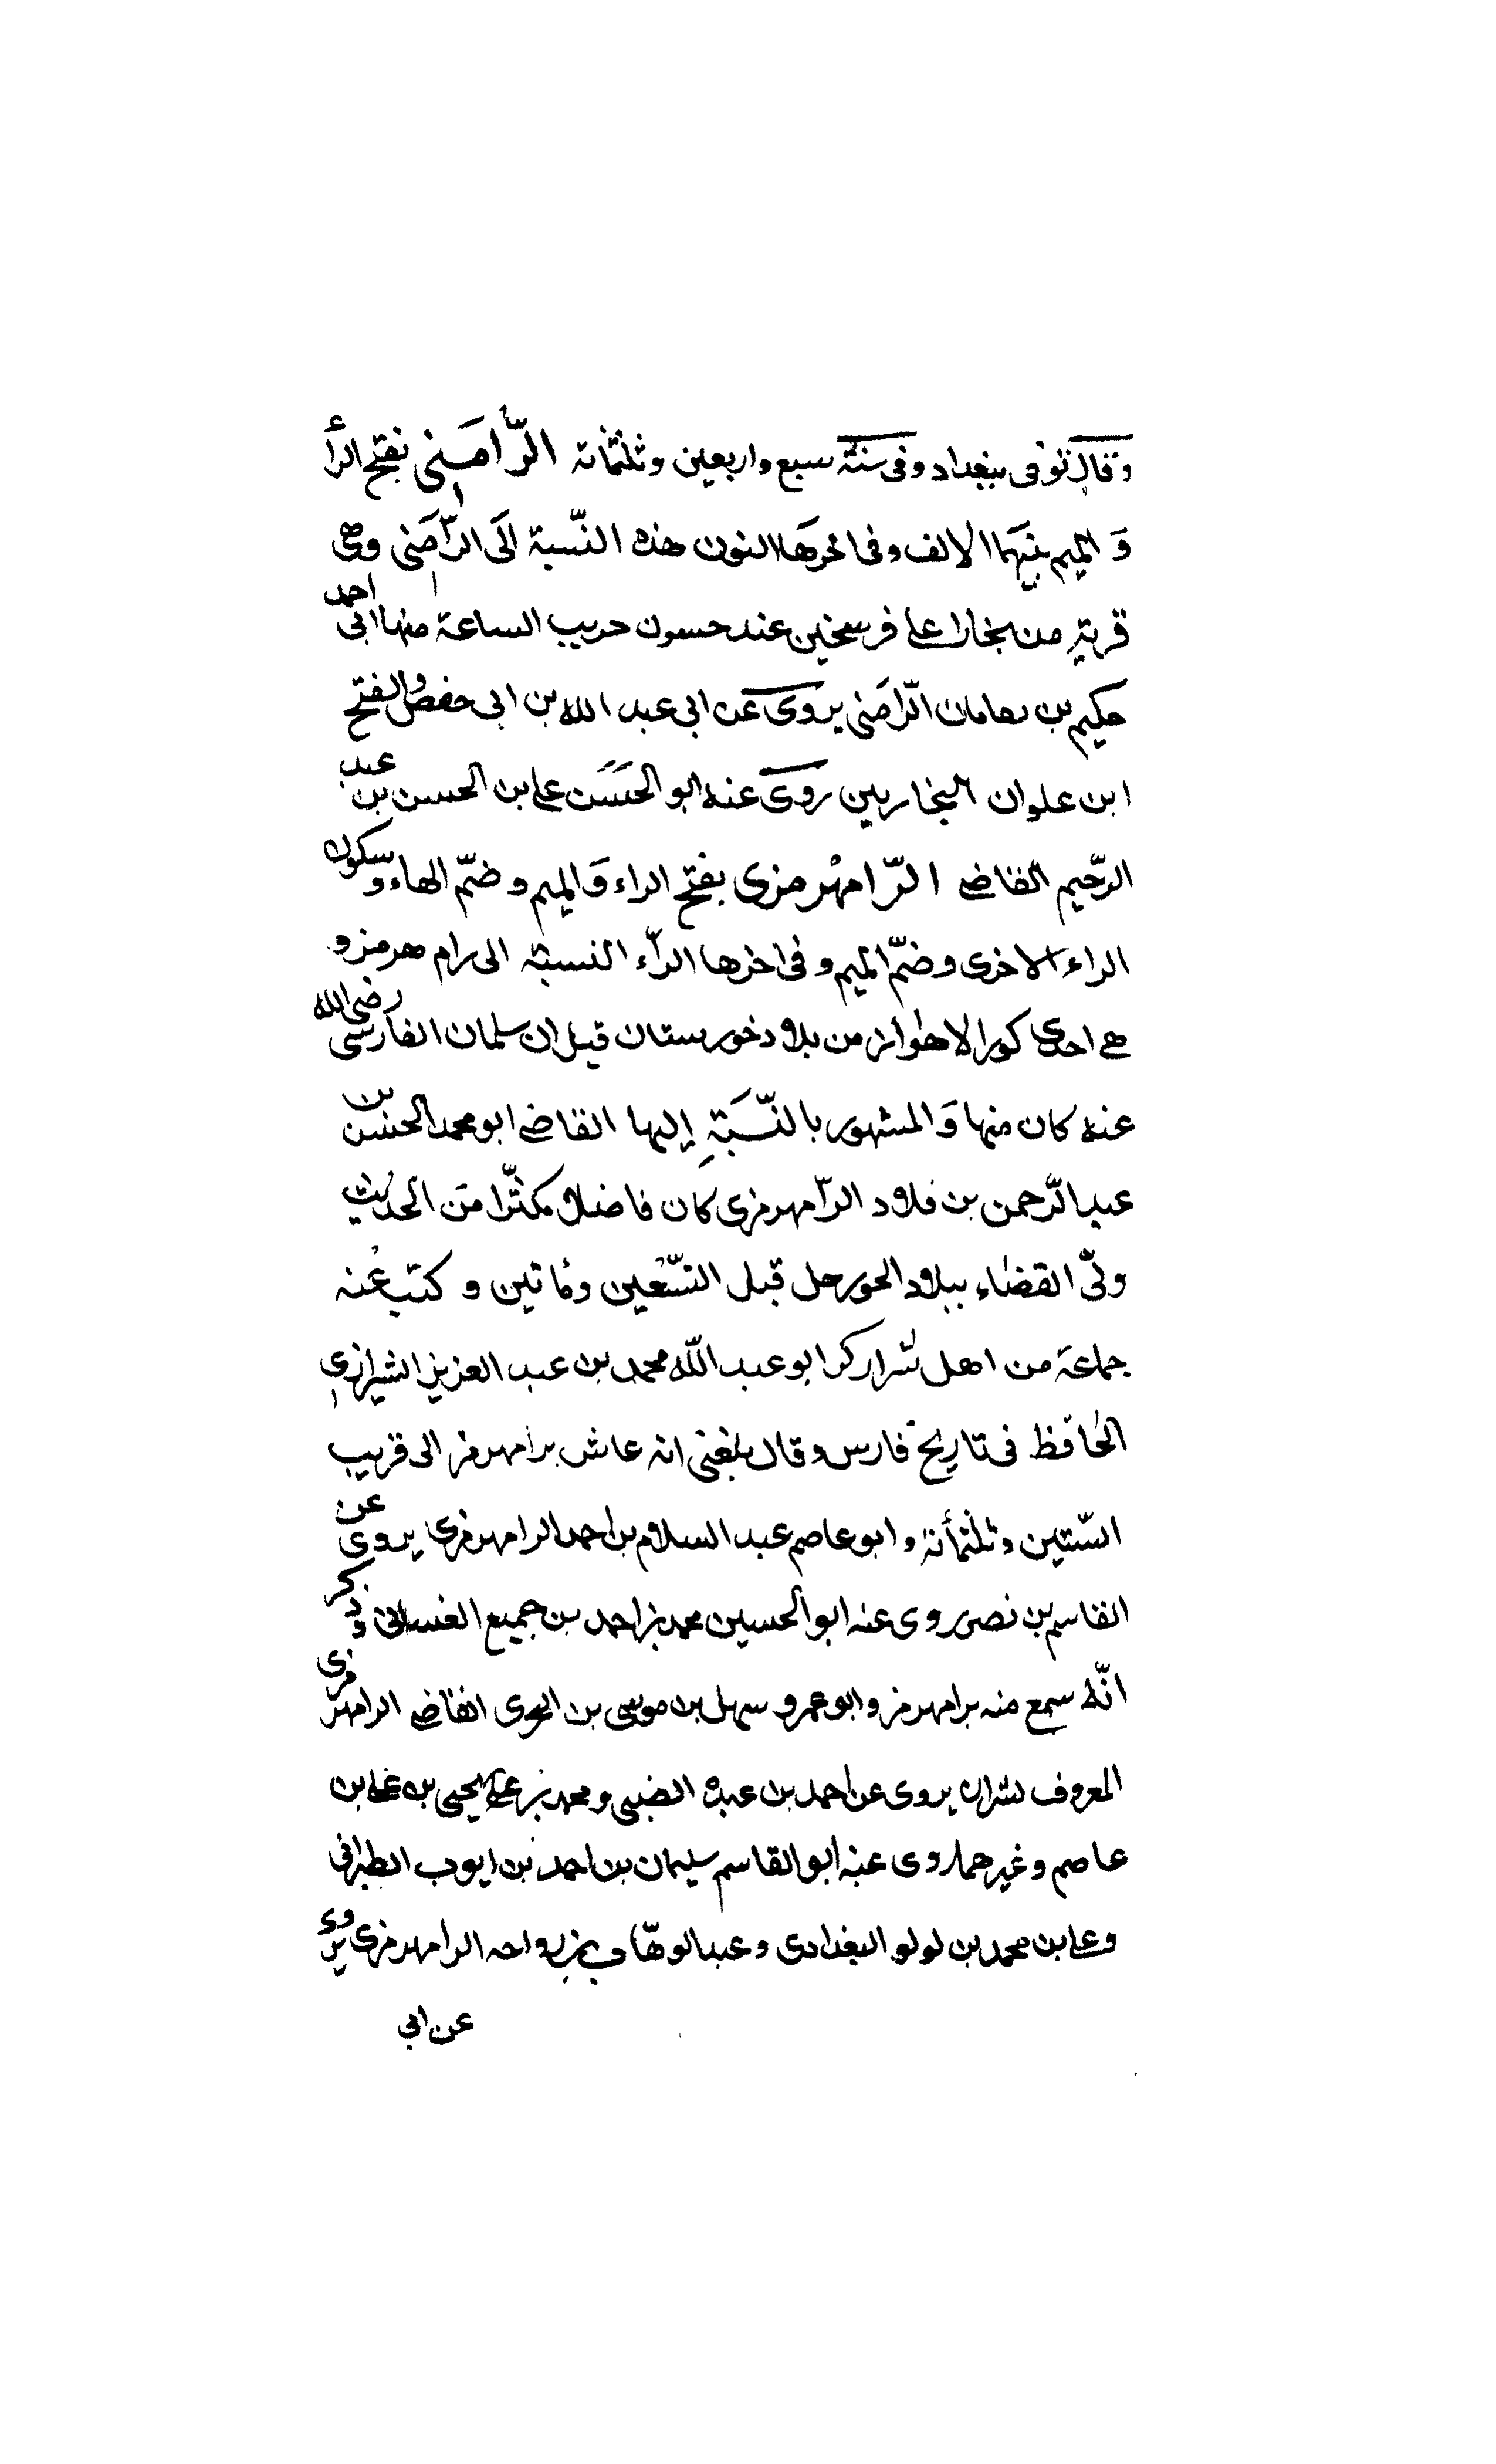 وقال توفى ببغداد وفى سنة سبع واربعين وثلثمائة الرَّامَنى بفتح الراء
وَ الميم بينهما الالف وفى اخرها النون هذه النّسبة الَى الرّامَنى وهى
قرية من بخارا على فرسخين عند حسون حريب الساعة منها ابى احمد
حكيم بن لعامان الرّامَنى يروى عن ابى عبد الله بن ابى حفص والفتح
ابن علوان البخاريين روى عنه ابو الحَسَن على بن الحسن بن عبد
الرّحيم القاضى الرّامهْرمزى بفتح الراء وَالميم وضمّ الهاء وسكون
الراء الاخرى وضمّ الميم وفى اخرها الرّاء النسبة الى رام هرمز و
هى احدى كور الاهواز من بلاد خورستان قيل ان سلمان الفارسى رضى الله
عنه كان منها وَالمشهور بالنّسَبَةِ إليها القاضى ابو محمد الحسن بن
عبد الرّحمن بن فلاد الرّامهرمزى كان فاضلا مكثّرا من الحديث
ولّى القضاء ببلاد الحورحل قبل التّسعين ومائتين و كتب عنه
جماعة من اهل شرار كر ابو عبد اللّه محمد بن عبد العزيز الشيرازى
الحافظ فى تاريخ فارس وقال بلغنى انه عاش برامهرمز الى قريب
السّتين وثلثمأئة وابو عاصم عبد السلام بن احمد الرامهرمزى يروى عن
القاسم بن نصر روى عنه ابو الحسين محمد بن احمد بن جميع الغسانى وذكر
انّه سمع منه برامهرمز وابو عمرو سهل بن موسى بن البحرى القاضى الرامهرمزى
المعروف لشران يروى عن احمد بن عبدة الضبى ومحمد بن على يحيى بن على بن
عاصم وغيرهما روى عنه ابو القاسم سليمان بن احمد بن ايوب الطبرانى
وعلى بن محمد بن لولو البغدادى وعبد الوهّاب بن رواحه الرامهرمزى يروى
عن ابى